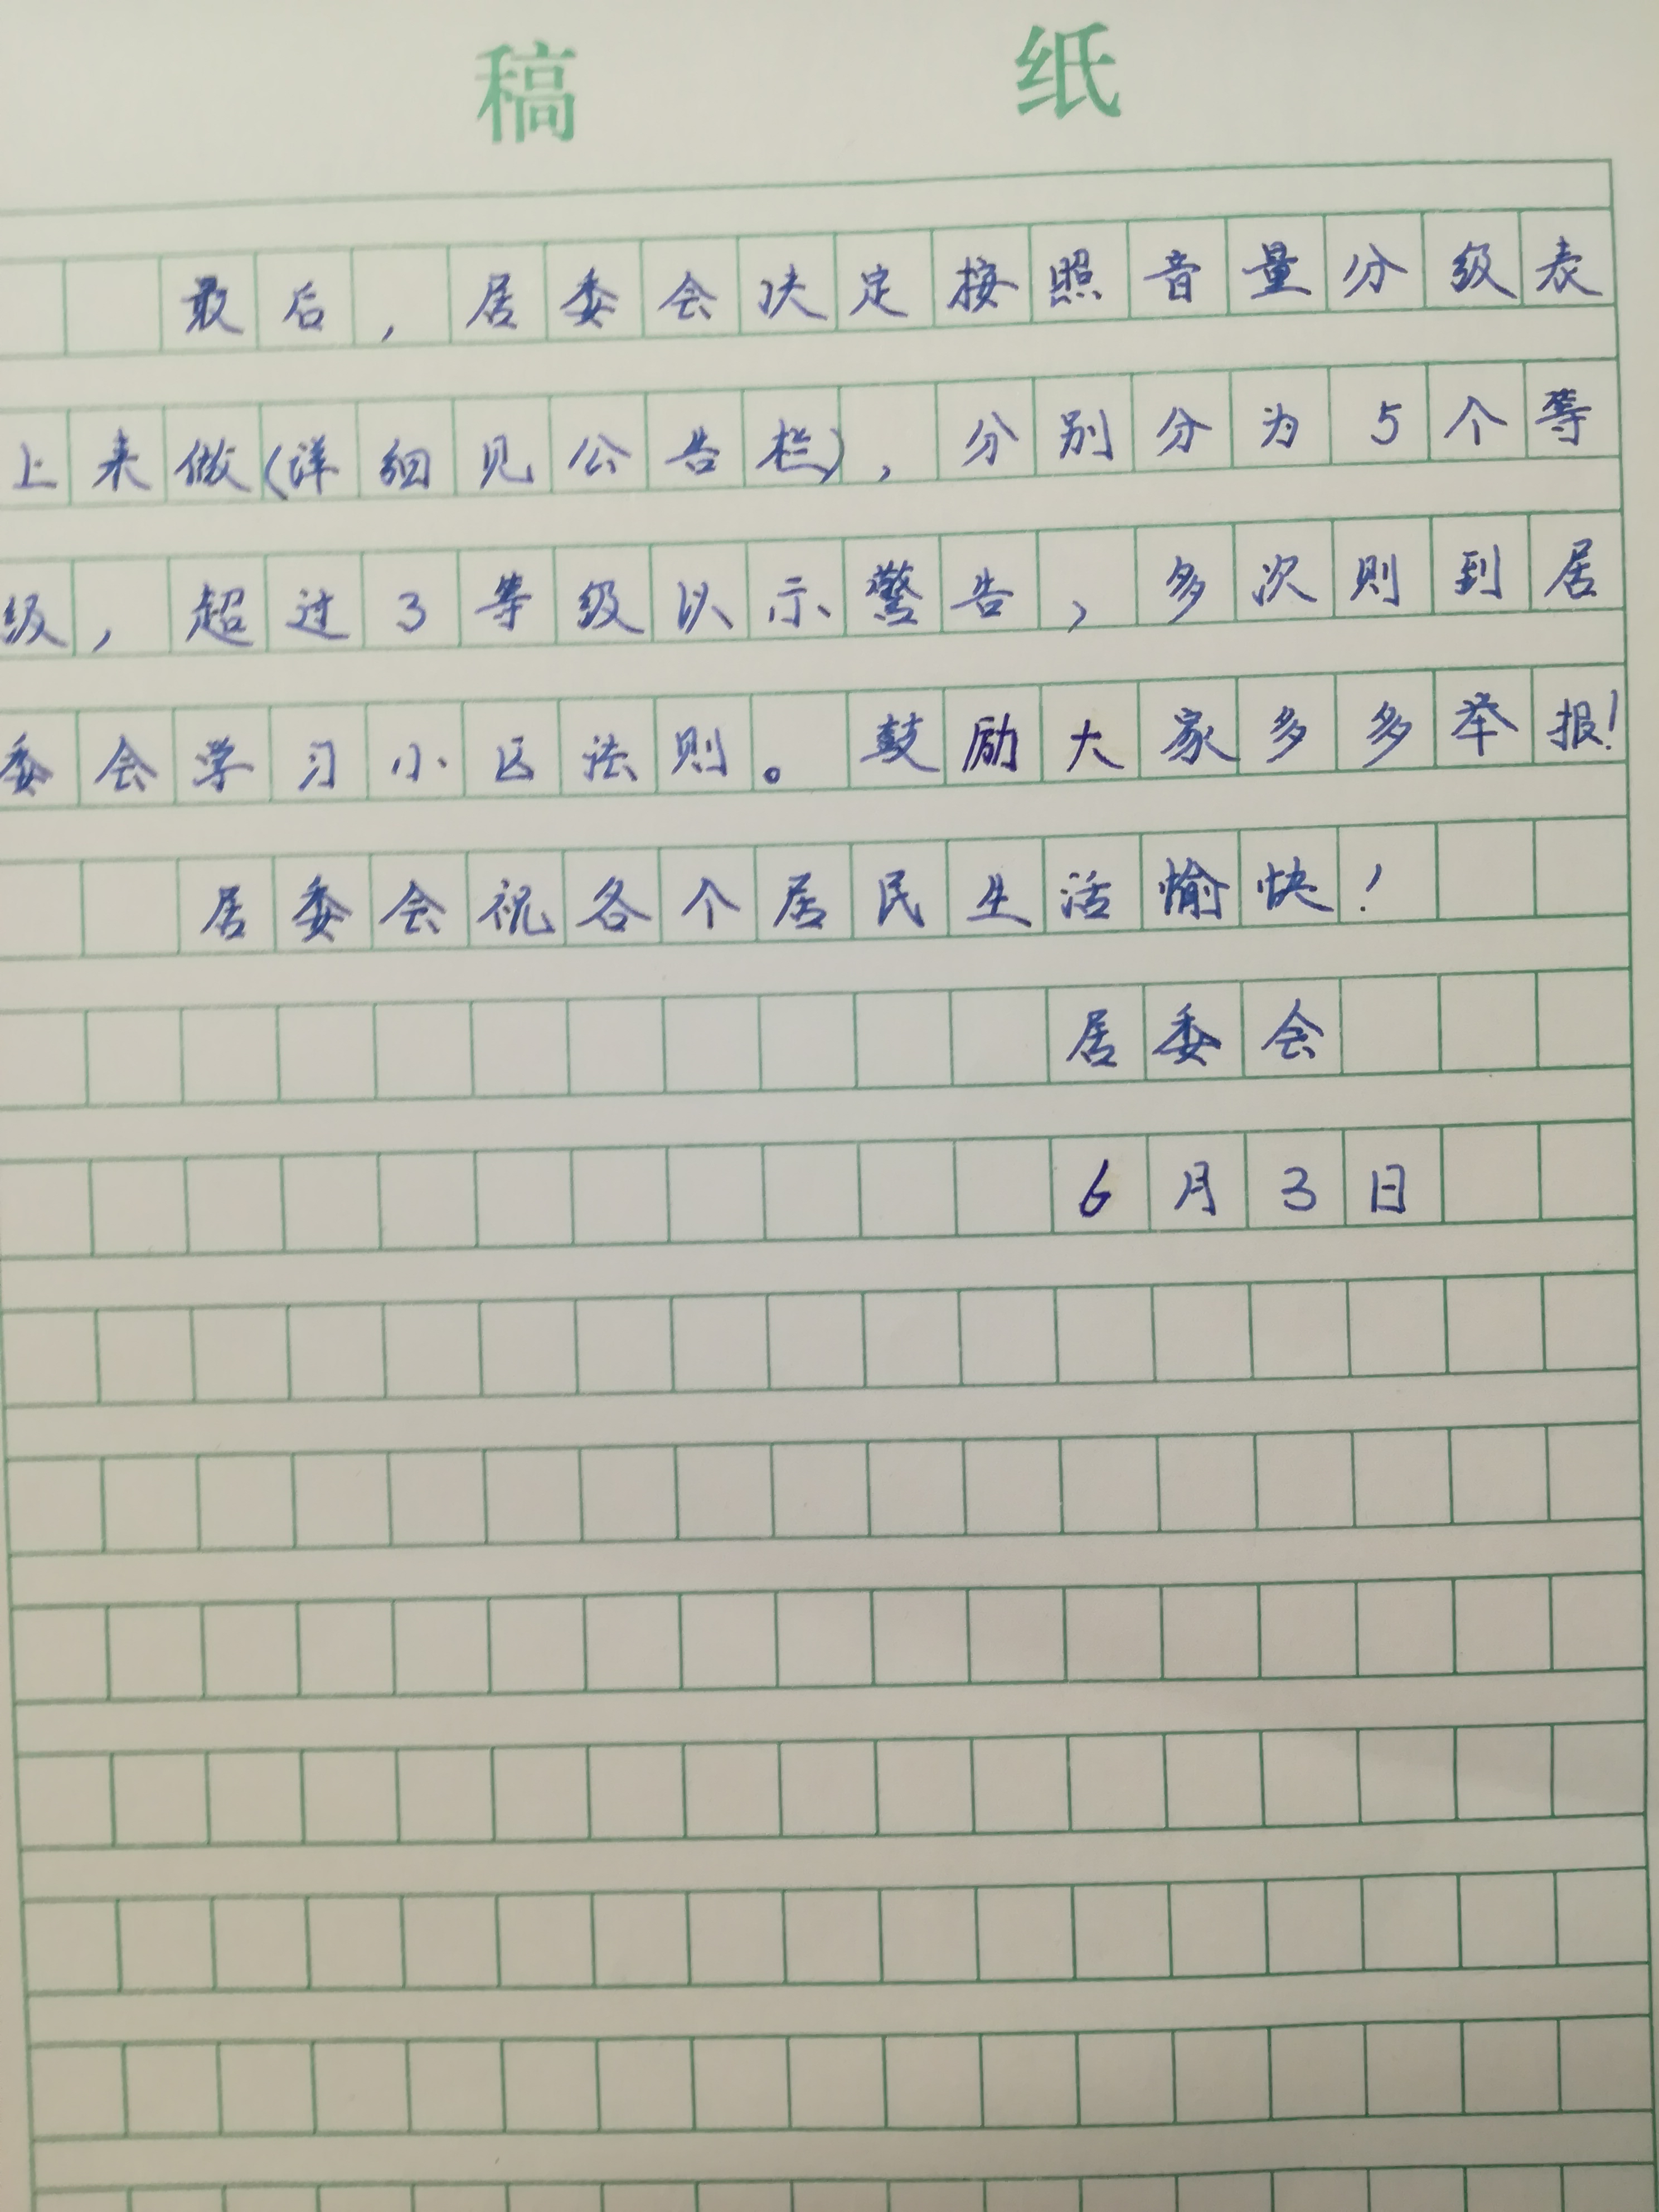 稿 纸
最后，居委会决定按照音量分级表
上来做(详细见公告栏)，分别分为5个等
级，超过3等级以示警告，多次则到居
委会学习小区法则。鼓励大家多多举报!
居委会祝各个居民生活愉快!
居委会
6月3日